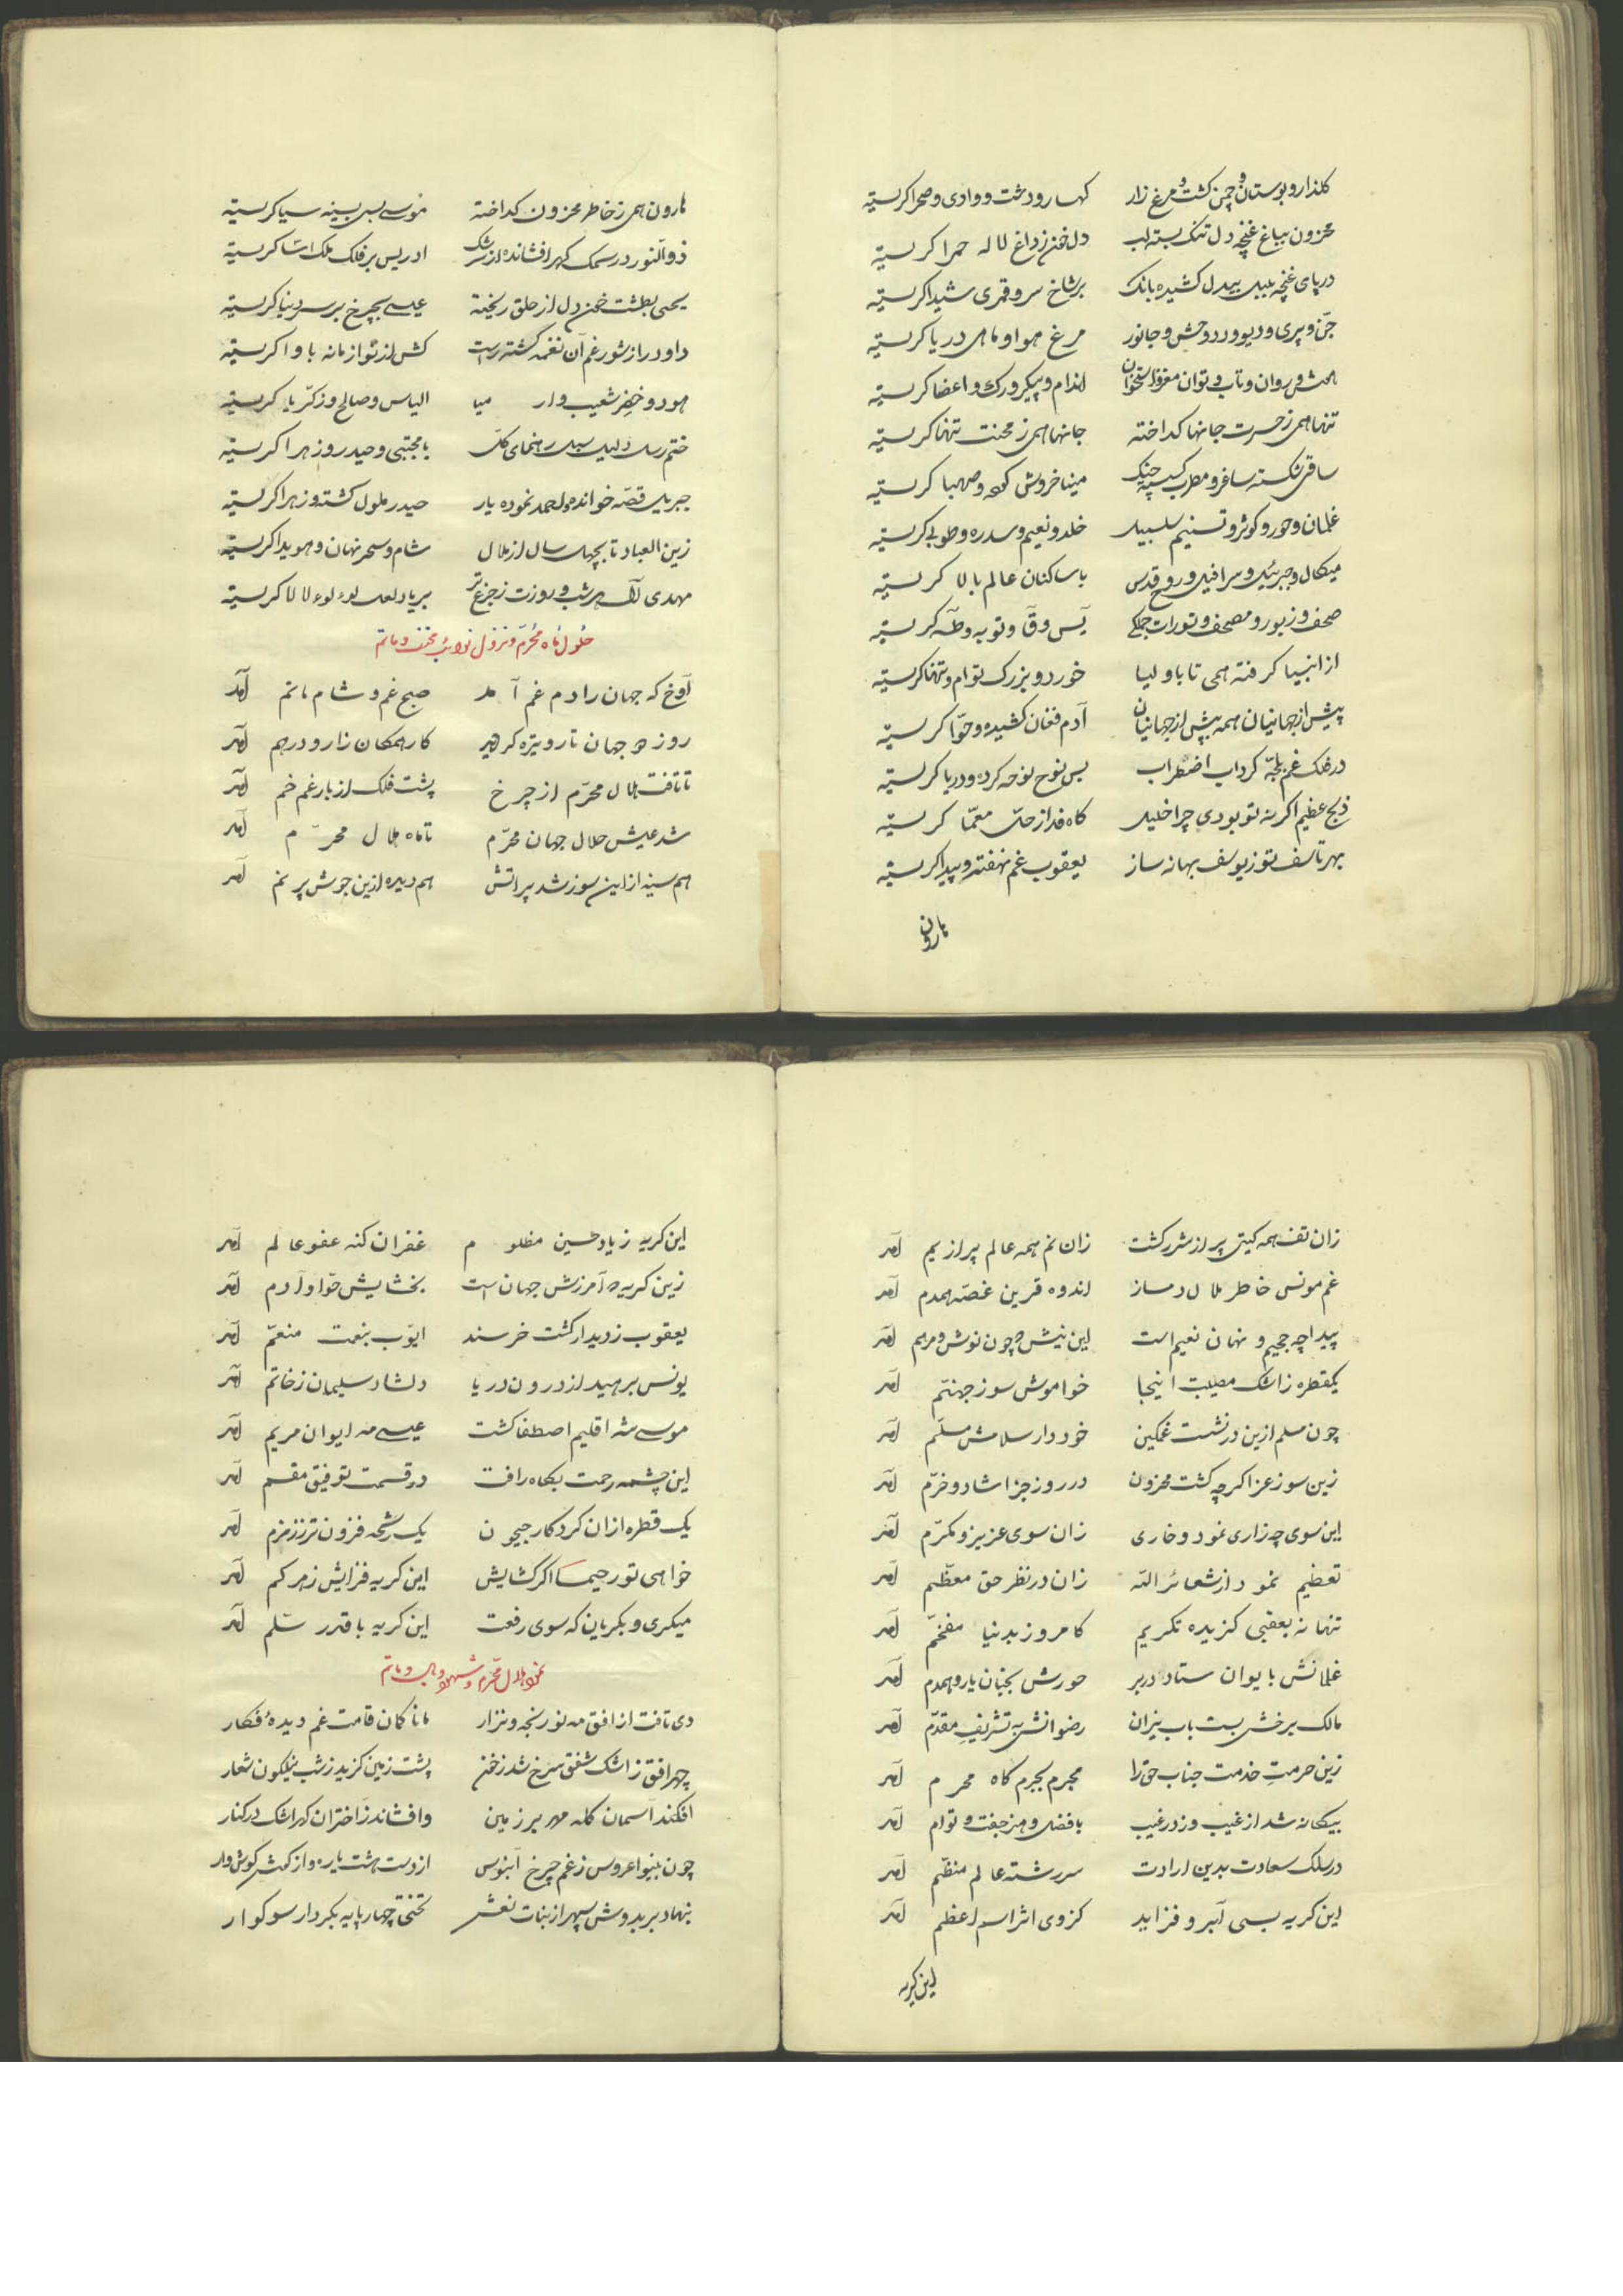 گلذار و بوستان و چمن کشت و مرغ زار کهسار و دشت و وادی و صحرا کریسته
محزون بباغ غنچه دل تنک بسته لب دل خون ز داغ لاله حمرا کریسته
در پای غنچه بلبل بیدل کشیده بانک بر شاخ سرو قمری شیدا کریسته
جن و پری و دیو و دد و وحش و جانور مرغ هوا و ماهی دریا کریسته
هوش و روان و تاب و توان مغز و استخوان اندام و پیکر و رک و اعضا کریسته
تنها همی ز حسرت جانها کداخته جانها همی ز محنت تنها کریسته
ساقی شکسته ساغر و مطرب کسیخته چنک مینا خروش کرده و صهبا کریسته
غلمان و حور و کوثر و تسنیم سلسبیل خلد و نعیم و سدره و طوبی کریسته
میکال و جبرئیل و سرافیل و روح قدس با ساکنان عالم بالا کریسته
صحف و زبور و مصحف و تورات جملکی یس و ق و توبه و طه کریسته
از انبیا کرفته همی تا باولیا خورد و بزرک توام و تنها کریسته
پیش از جهانیان همه پیش از جهانیان آدم فغان کشیده و حوا کریسته
در فلک غم بلجه کرداب اضطراب بس نوح نوحه کرده و دریا کریسته
ذبح عظیم اکر نه تو بودی چرا خلیل کاه فدا ز حل معما کریسته
بهر تاسف تو ز یوسف بهانه ساز یعقوب غم نهفته و پیدا کریسته
هارون
هارون همی ز خاطر محزون کداخته موسی بسی بسینه سینا کریسته
ذوالنور در سمک کهر افشانده از سرشک ادریس بر فلک ملک آسا کریسته
یحیی بطشت خون دل از حلق ریخته عیسی بچرخ بر سر دنیا کریسته
داود را ز شور غم آن نغمه کشته راست کش از نوا زمانه باوا کریسته
هود و خضر شعیب و ارمیا الیاس و صالح و زکریا کریسته
ختم رسل دلیل سبل رهنمای کل با مجتبی و حیدر و زهرا کریسته
جبریل قصه خوانده و احمد نموده یار حیدر ملول کشته و زهرا کریسته
زین العباد تا بچهل سال از ملال شام و سحر نهان و هویدا کریسته
مهدی آل هر شب و روزت ز جزع تر بر یاد لعل لوء لوء لالا کریسته
حلول ماه محرم و نزول نوائب محنت و ماتم
آوخ که جهان را دم غم آمد صبح غم و شام ماتم آمد
روز جهان تار و تیره کردید کار همکان زار و درهم آمد
تا تافت هلال محرم از چرخ پشت فلک از بار غم خم آمد
شد عیش حلال جهان محرم تا ماه هلال محرم آمد
هم سینه از این سوز شد پر اتش هم دیده ازین جوش پر نم آمد
زان تف همه کیتی پر از شرر کشت زان نم همه عالم پر از یم آمد
غم مونس خاطر ملال دمساز اندوه قرین غصه همدم آمد
پیدا چه جحیم و نهان نعیم است این نیش چون نوش و مرهم آمد
یکقطره ز اشک مصیبت اینجا خواموش سوز جهنم آمد
چون مسلم ازین در نشست غمکین خود دار سلامش مسلم آمد
زین سوز عزا کرچه کشت محزون در روز جزا شاد و خرم آمد
این سوی چه زاری نمود و خاری زان سوی عزیز و مکرم آمد
تعظیم نمود از شعائر الله زان در نظر حق معظم آمد
تنها نه بعقبی کزیده تکریم کامروز بدنیا مفخم آمد
غلمانش بایوان ستاد در بر حورش بجنان یار و همدم آمد
مالک برخش بست باب نیران رضوانش به تشریف مقدم آمد
زین حرمت خدمت جناب حق را مجرم بحرم کاه محرم آمد
بیکانه شد از عیب و زد ر غیب با فضل و هنر جفت و توام آمد
در سلک سعادت بدین ارادت سر رشته عالم منظم آمد
این کریه بسی آبرو فزاید کز وی اثر اسم اعظم آمد
این کریه
این کریه ز یاد حسین مظلوم غفران کنه عفو عالم آمد
زین کریه آمرزش جهان است بخشایش حوا و آدم آمد
یعقوب ز دیدار کشت خرسند ایوب بنعمت منعم آمد
یونس برهید از درون دریا دلشاد سلیمان ز خاتم آمد
موسی شه اقلیم اصطفا کشت عیسی مه ایوان مریم آمد
این چشمه رحمت بکاه رافت در قسمت توفیق مقسم آمد
یک قطره ازان کرد کار جیحون یک رشحه فزون تر ز زمزم آمد
خواهی تو رحیما اکر کشایش این کریه فزایش ز هر کم آمد
میکری و بکریان که سوی رفعت این کریه با قدر سلم آمد
نمود هلال محرم و شهود ملال و ماتم
دی تافت از افق مه نو رنجه و نزار مانا کمان قامت غم دیده فکار
چهر افق ز اشک شفق سرخ شد ز خون پشت زمین کزید ز شب نیلکون شعار
افکند آسمان کله مهر بر زمین و افشاند ز اختران کهر اشک در کنار
چون بینوا عروس ز غم چرخ آبنوس از دست هشت یاره و از کوش کوش وار
بنهاد بر بدوش سپهر از بنات نعش تختی چهار پایه بکردار سوکوار